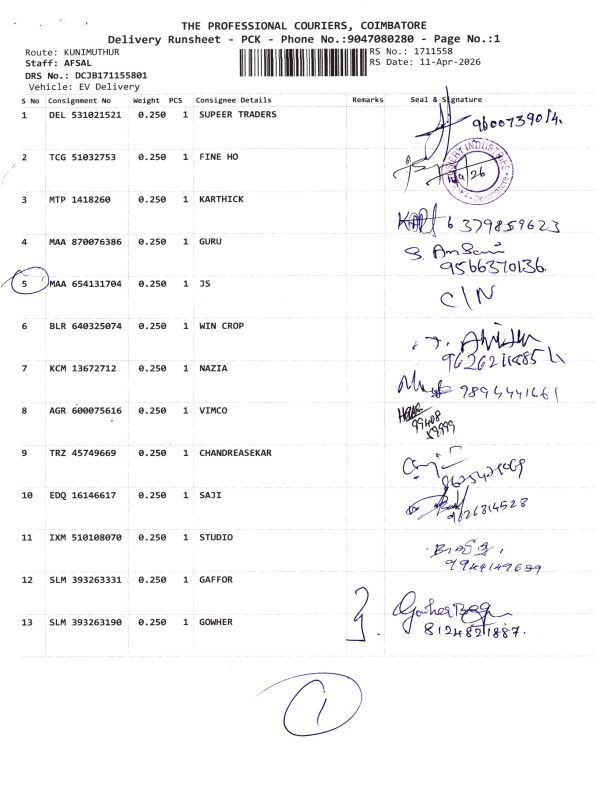 THE PROFESSIONAL COURIERS, COIMBATORE
Delivery Runsheet - PCK - Phone No.:9047080280 - Page No.:1
Route: KUNIMUTHUR
RS No.: 1711558
Staff: AFSAL
RS Date: 11-Apr-2026
DRS No.: DCJB171155801
Vehicle: EV Delivery
S No Consignment No Weight PCS Consignee Details Remarks Seal & Signature
1 DEL 531021521 0.250 1 SUPEER TRADERS
2 TCG 51032753 0.250 1 FINE HO
3 MTP 1418260 0.250 1 KARTHICK
6379859623
4 MAA 870076386 0.250 1 GURU
S. Ansari
9566370136
5 MAA 654131704 0.250 1 JS
C/N
6 BLR 640325074 0.250 1 WIN CROP
7 KCM 13672712 0.250 1 NAZIA
9894441461
8 AGR 600075616 0.250 1 VIMCO
9 TRZ 45749669 0.250 1 CHANDREASEKAR
10 EDQ 16146617 0.250 1 SAJI
11 IXM 510108070 0.250 1 STUDIO
12 SLM 393263331 0.250 1 GAFFOR
13 SLM 393263190 0.250 1 GOWHER
8124821887.
1